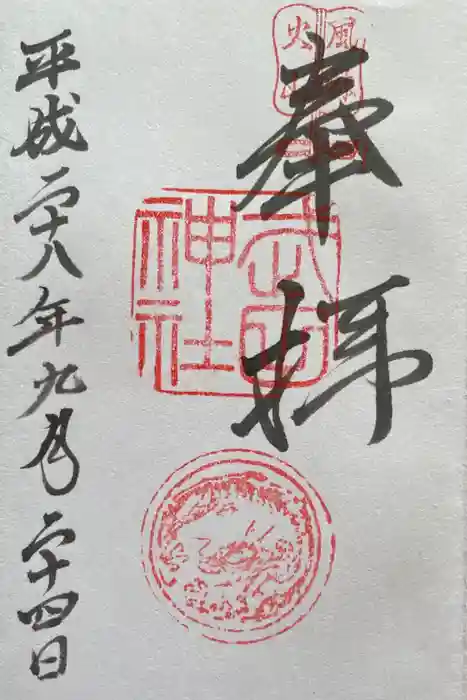 奉拝
武田神社
平成二十八年九月二十四日